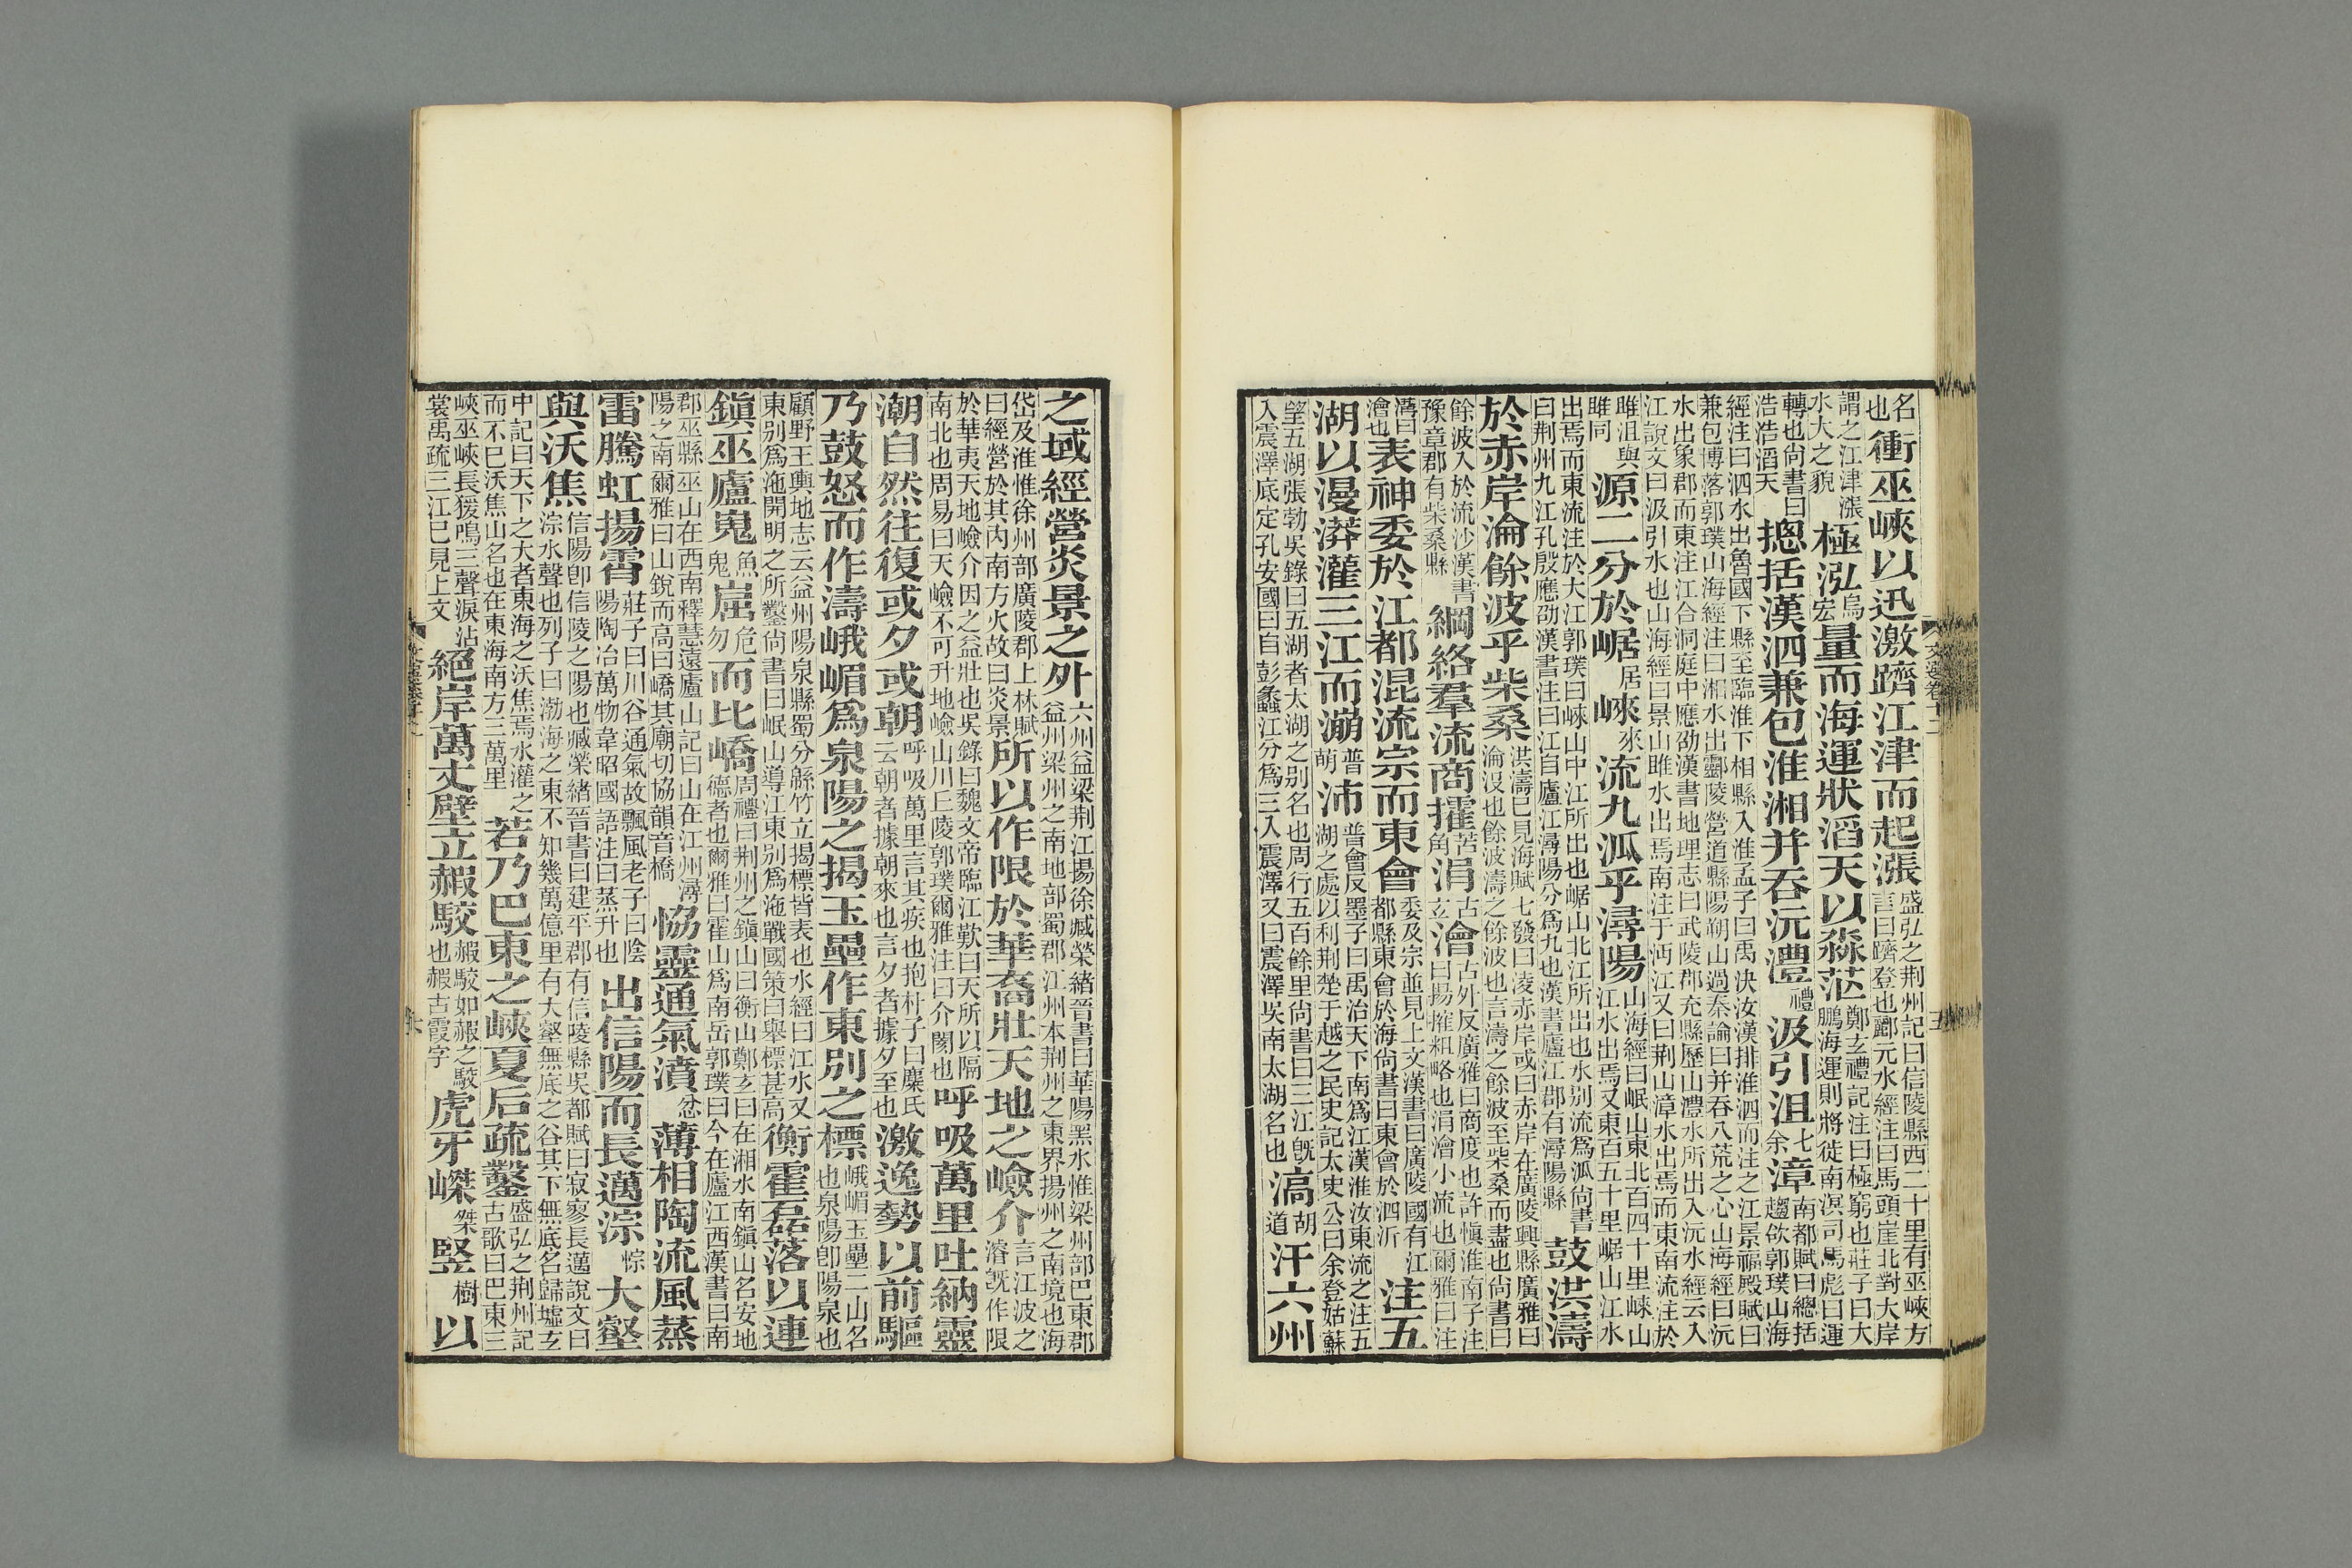 名也衝巫峽以迅激躋江津而起漲盛弘之荆州記曰信陵縣西二十里有巫峽方言曰躋登也酈元水經注曰馬頭崖北對大岸
謂之江津漲水大之貌極泓烏宏量而海運狀滔天以淼茫鄭玄禮記注曰極窮也莊子曰大鵬海運則將徙南溟司馬彪曰運
轉也尚書曰浩浩滔天摠括漢泗兼包淮湘并吞沅澧禮汲引沮七余漳南都賦曰總括趨欲郭璞山海
經注曰泗水出魯國下縣至臨淮下相縣入淮孟子曰禹決汝漢排淮泗而注之江景福殿賦曰兼包博落郭璞山海經注曰湘水出酃陵營道縣陽朔山過秦論曰并吞八荒之心山海經曰沅
水出象郡而東注江合洞庭中應劭漢書地理志曰武陵郡充縣歷山澧水所出入沅水經云入江說文曰汲引水也山海經曰景山雎水出焉南注于沔江又曰荆山漳水出焉而東南流注於
雎沮與雎同源二分於崌居崍來流九泒乎潯陽山海經曰岷山東北百四十里崍山江水出焉又東百五十里崌山江水
出焉而東流注於大江郭璞曰崍山中江所出也崌山北江所出也水别流爲泒尚書曰荆州九江孔殷應劭漢書注曰江自廬江潯陽分爲九也漢書廬江郡有潯陽縣鼓洪濤
於赤岸淪餘波乎柴桑洪濤已見海賦七發曰凌赤岸或曰赤岸在廣陵興縣廣雅曰淪沒也餘波濤之餘波也言濤之餘波至柴桑而盡也尚書曰
餘波入於流沙漢書豫章郡有柴桑縣綱絡羣流商搉苦角涓古玄澮古外反廣雅曰商度也許愼淮南子注曰揚搉粗略也涓澮小流也爾雅曰注
溝曰澮也表神委於江都混流宗而東會委及宗並見上文漢書曰廣陵國有江都縣東會於海尚書曰東會於泗沂注五
湖以漫漭灌三江而漰普萌沛普會反墨子曰禹治天下南爲江漢淮汝東流之注五湖之處以利荆楚于越之民史記太史公曰余登姑蘇
望五湖張勃吳錄曰五湖者太湖之别名也周行五百餘里尚書曰三江旣入震澤底定孔安國曰自彭蠡江分爲三入震澤又曰震澤吳南太湖名也滈胡道汗六州
之域經營炎景之外六州益梁荆江揚徐臧榮緒晉書曰華陽黑水惟梁州部巴東郡益州梁州之南地部蜀郡江州本荆州之東界揚州之南境也海
岱及淮惟徐州部廣陵郡上林賦曰經營於其内南方火故曰炎景所以作限於華裔壯天地之嶮介言江波之溶旣作限
於華夷天地嶮介因之益壯也吳錄曰魏文帝臨江歎曰天所以隔南北也周易曰天嶮不可升地嶮山川丘陵郭璞爾雅注曰介閡也呼吸萬里吐納靈
潮自然往復或夕或朝呼吸萬里言其疾也抱朴子曰麋氏云朝者據朝來也言夕者據夕至也激逸勢以前驅
乃鼓怒而作濤峨嵋爲泉陽之揭玉壘作東別之標峨嵋玉壘二山名也泉陽卽陽泉也
顧野王輿地志云益州陽泉縣蜀分緜竹立揭標皆表也水經曰江水又東别爲沲開明之所鑿尚書曰岷山導江東别爲沲戰國策曰舉標甚高衡霍磊落以連
鎭巫廬嵬魚鬼崫危勿而比嶠周禮曰荆州之鎭山曰衡山鄭玄曰在湘水南鎭山名安地德者也爾雅曰霍山爲南岳郭璞曰今在廬江西漢書曰南
郡巫縣巫山在西南釋慧遠廬山記曰山在江州潯陽之南爾雅曰山銳而高曰嶠其廟切協韻音橋協靈通氣濆忿薄相陶流風蒸
雷騰虹揚霄莊子曰川谷通氣故飄風老子曰陰陽陶冶萬物韋昭國語注曰蒸升也出信陽而長邁淙悰大壑
與沃焦信陽卽信陵之陽也臧榮緒晉書曰建平郡有信陵縣吳都賦曰寂寥長邁說文曰淙水聲也列子曰渤海之東不知幾萬億里有大壑無底之谷其下無底名歸墟玄
中記曰天下之大者東海之沃焦焉水灌之而不已沃焦山名也在東海南方三萬里若乃巴東之峽夏后疏鑿盛弘之荆州記古歌曰巴東三
峽巫峽長猨鳴三聲淚沾裳禹疏三江已見上文絕岸萬丈壁立赮駮赮駮如赮之駮也赮古霞字虎牙嵥桀竪樹以